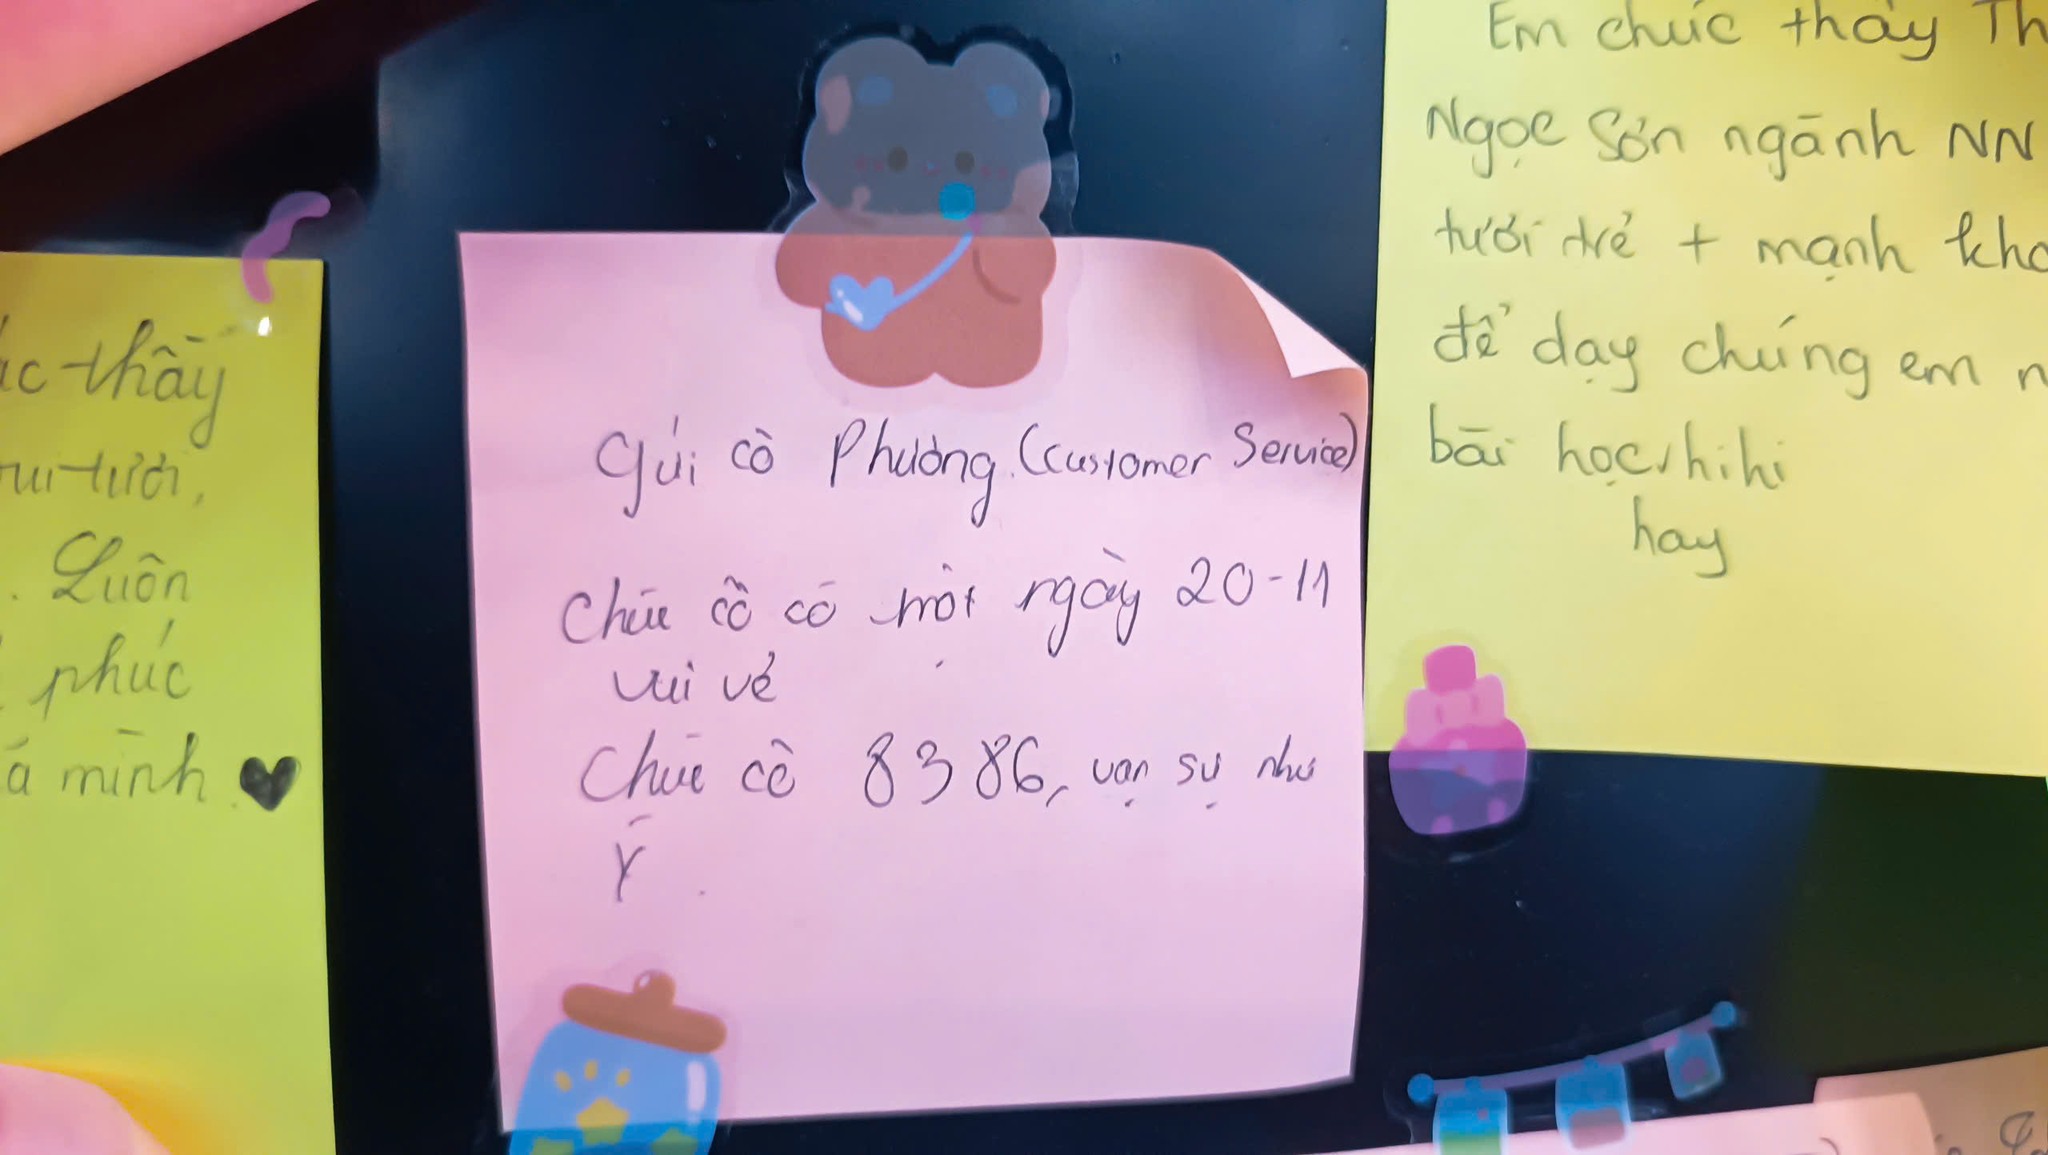 thầy
tươi,
Luôn
phúc
mình
Gửi cô Phương (Customer Service)
Chúc cô có một ngày 20-11
vui vẻ
Chúc cô 8386, vạn sự như
Ý.
Em chúc thầy
Ngọc Sơn ngành NN
tươi trẻ + mạnh
để dạy chúng em
bài học hihi
hay